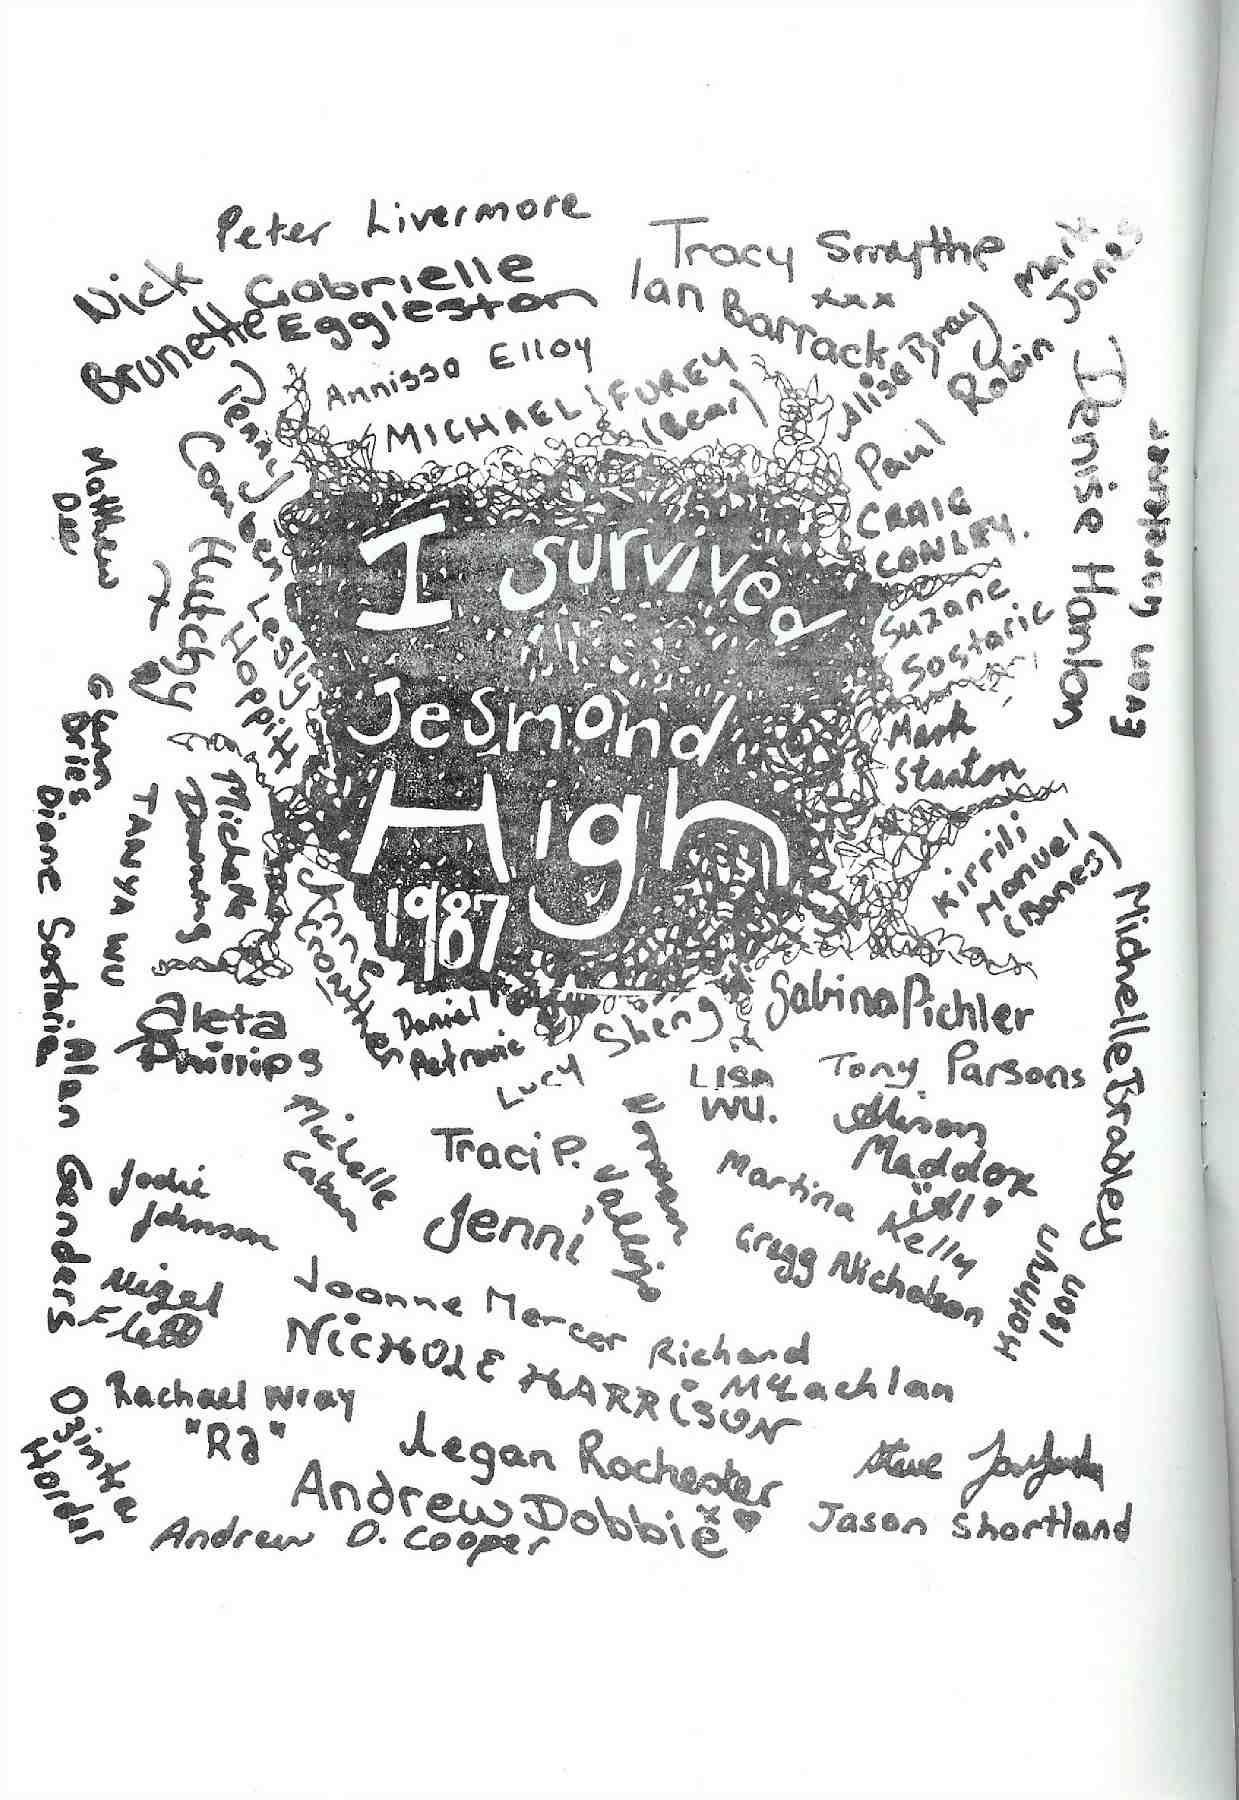 Peter Livermore
Nick
Brunette
Gabrielle
Eggleston
Tracy Smythe
xxx
Ian Barrack
Mark
Jones
Annissa Elloy
MICHAEL FUREY
(Bear)
Alisa Bray
Paul Robin
Denise Hanlon
Penny
Comben
Matthew
Dee
CRAIG
CONLEY.
I survived
Jesmond
High
1987
Suzane
Sostaric
Hutchy
Lesly
Hoppitt
Mark
Stanton
Glenn
Bries
Diane Sostaric
TANYA WU
Michelle
Kirrili
Manuel
(Bones)
Michelle Bradley
Anne
Crowther
Aleta
Phillips
Daniel
Petrovic
Lucy Sheng
Sabina Pichler
LISA
WU.
Tony Parsons
Allison
Maddox
Alan Genders
Michelle
Traci P.
Jenni
Vallejo
Martina Kelly
Gregg Nicholson
Kathryn
Ison
Jodie
Johnson
Nigel
Joanne Mercer
NICHOLE HARRISON
Richard
McLachlan
Rachael Wray
"Ra"
Horder
Legan Rochester
Andrew Dobbie
x
Andrew D. Cooper
Steve
Jason Shortland